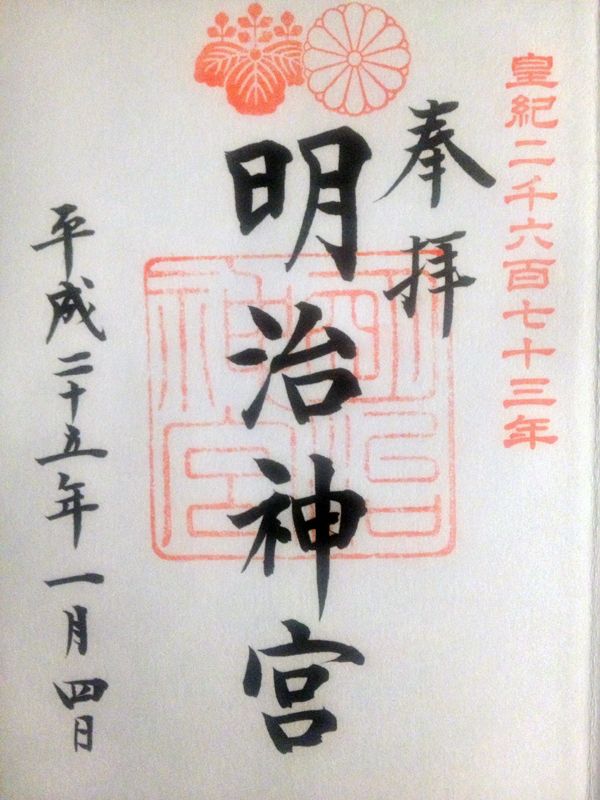 皇紀二千六百七十三年
奉拝
明治神宮
明治神宮
平成二十五年一月四日